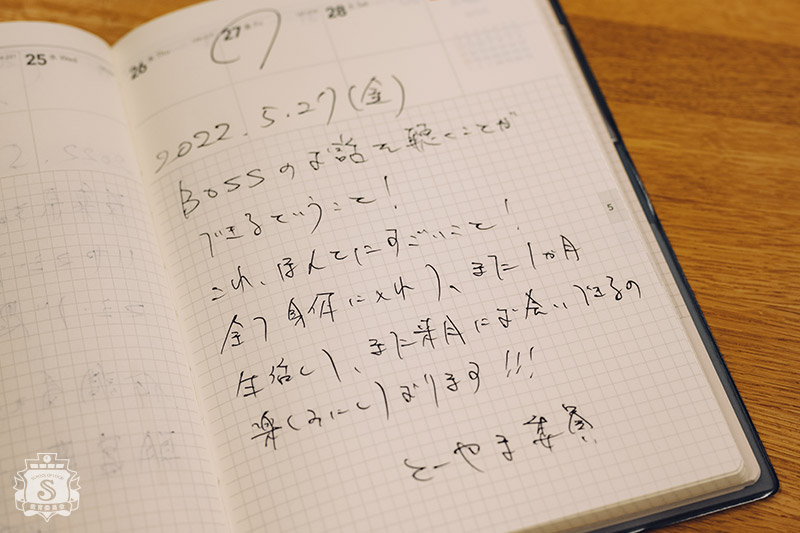 25
26
27
28
2022.5.27(金)
BOSSのお話を聴くことが
できるということ！
これ、ほんとにすごいこと！
全て身体に入れて、また1か月
生活して、また来月にお会いできるの
楽しみにしております!!!
とーやま委員
5
S